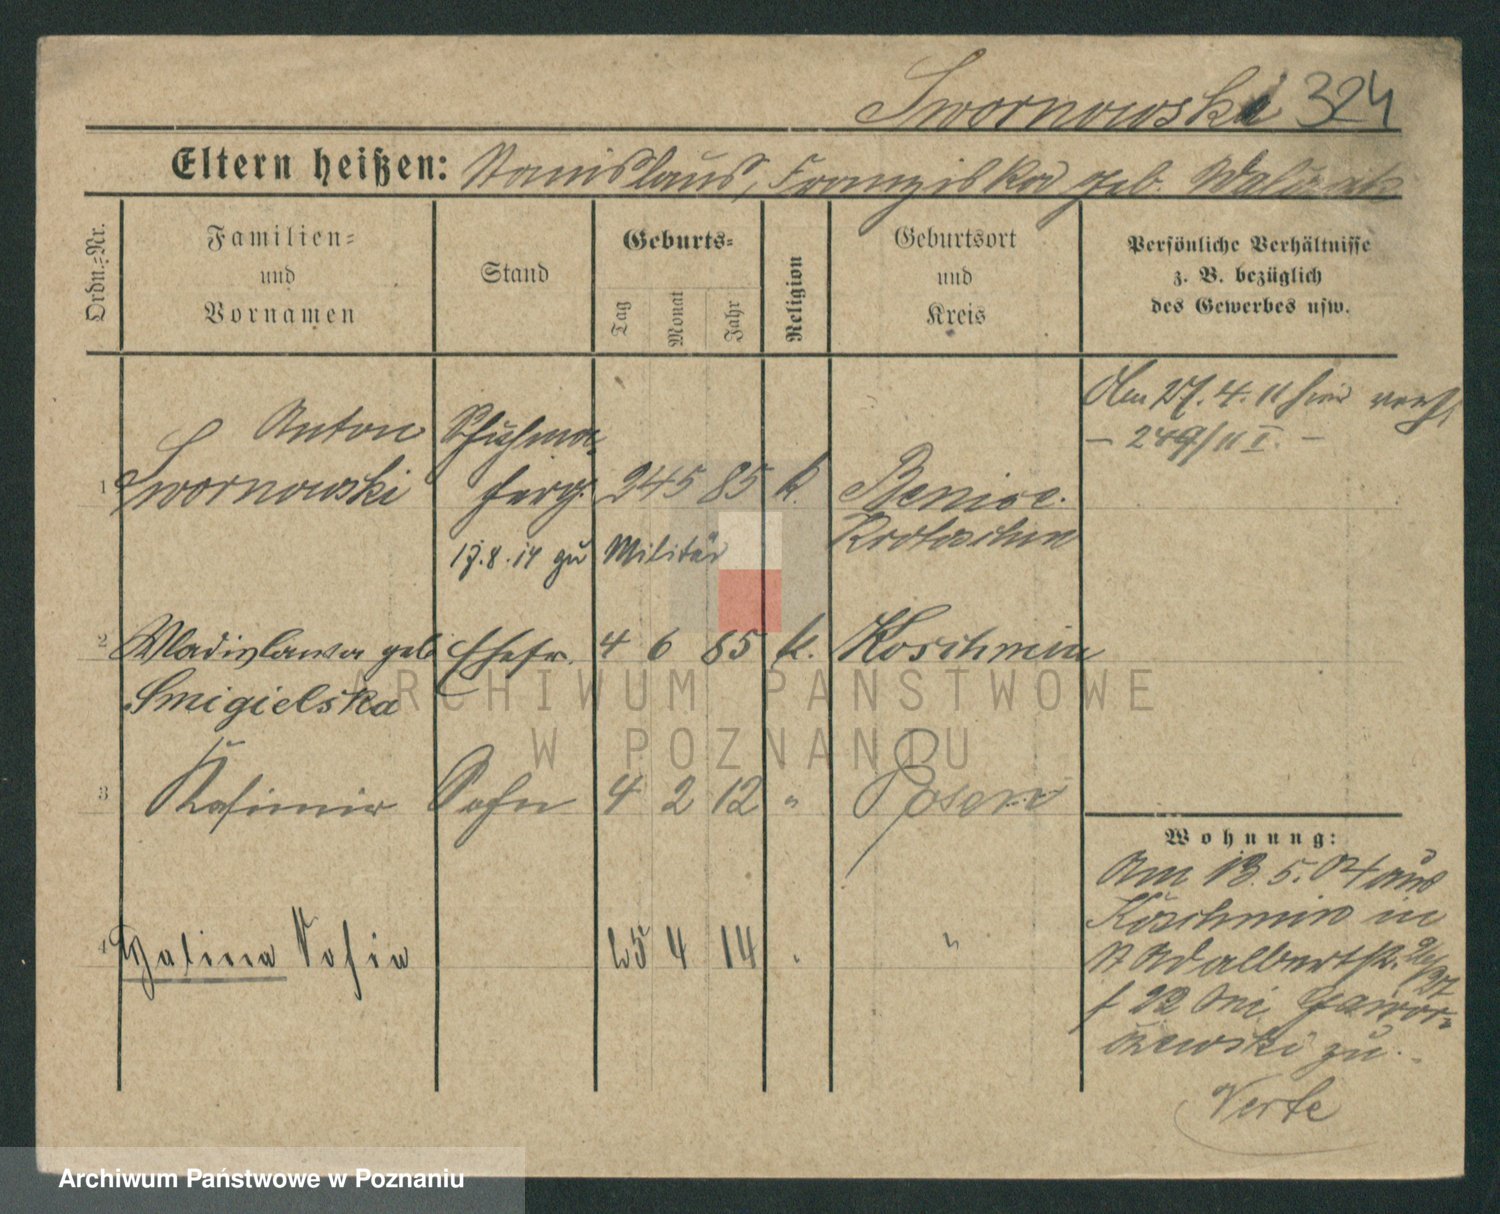 Swornowski 324
Eltern heißen: Stanislaus, Franziska geb.
Ordn.=Nr.
Familien=
und
Vornamen
Stand
Geburts=
Tag
Monat
Jahr
Religion
Geburtsort
und
Kreis
Persönliche Verhältnisse
z. B. bezüglich
des Gewerbes usw.
Am 27. 4. 11 hier verh.
– 249/11 I. –
1
Anton
Swornowski
Schuhma-
24 5 85 k.
Benice
Krotoschin
17.8.14 zu Militär
2 Wladislawa geb Ehefr. 4 6 85 k. Koschmin
Smigielska
3 Kasimir Sohn 4 2 12 " Posen
Wohnung:
Am 13. 5. 04 aus
Koschmin in
St Adalbertstr.
f 22 bei Gawor-
zewski zu.
4 Halina Sofia 25 4 14 " "
Verte
ARCHIWUM PAŃSTWOWE
W POZNANIU
Archiwum Państwowe w Poznaniu